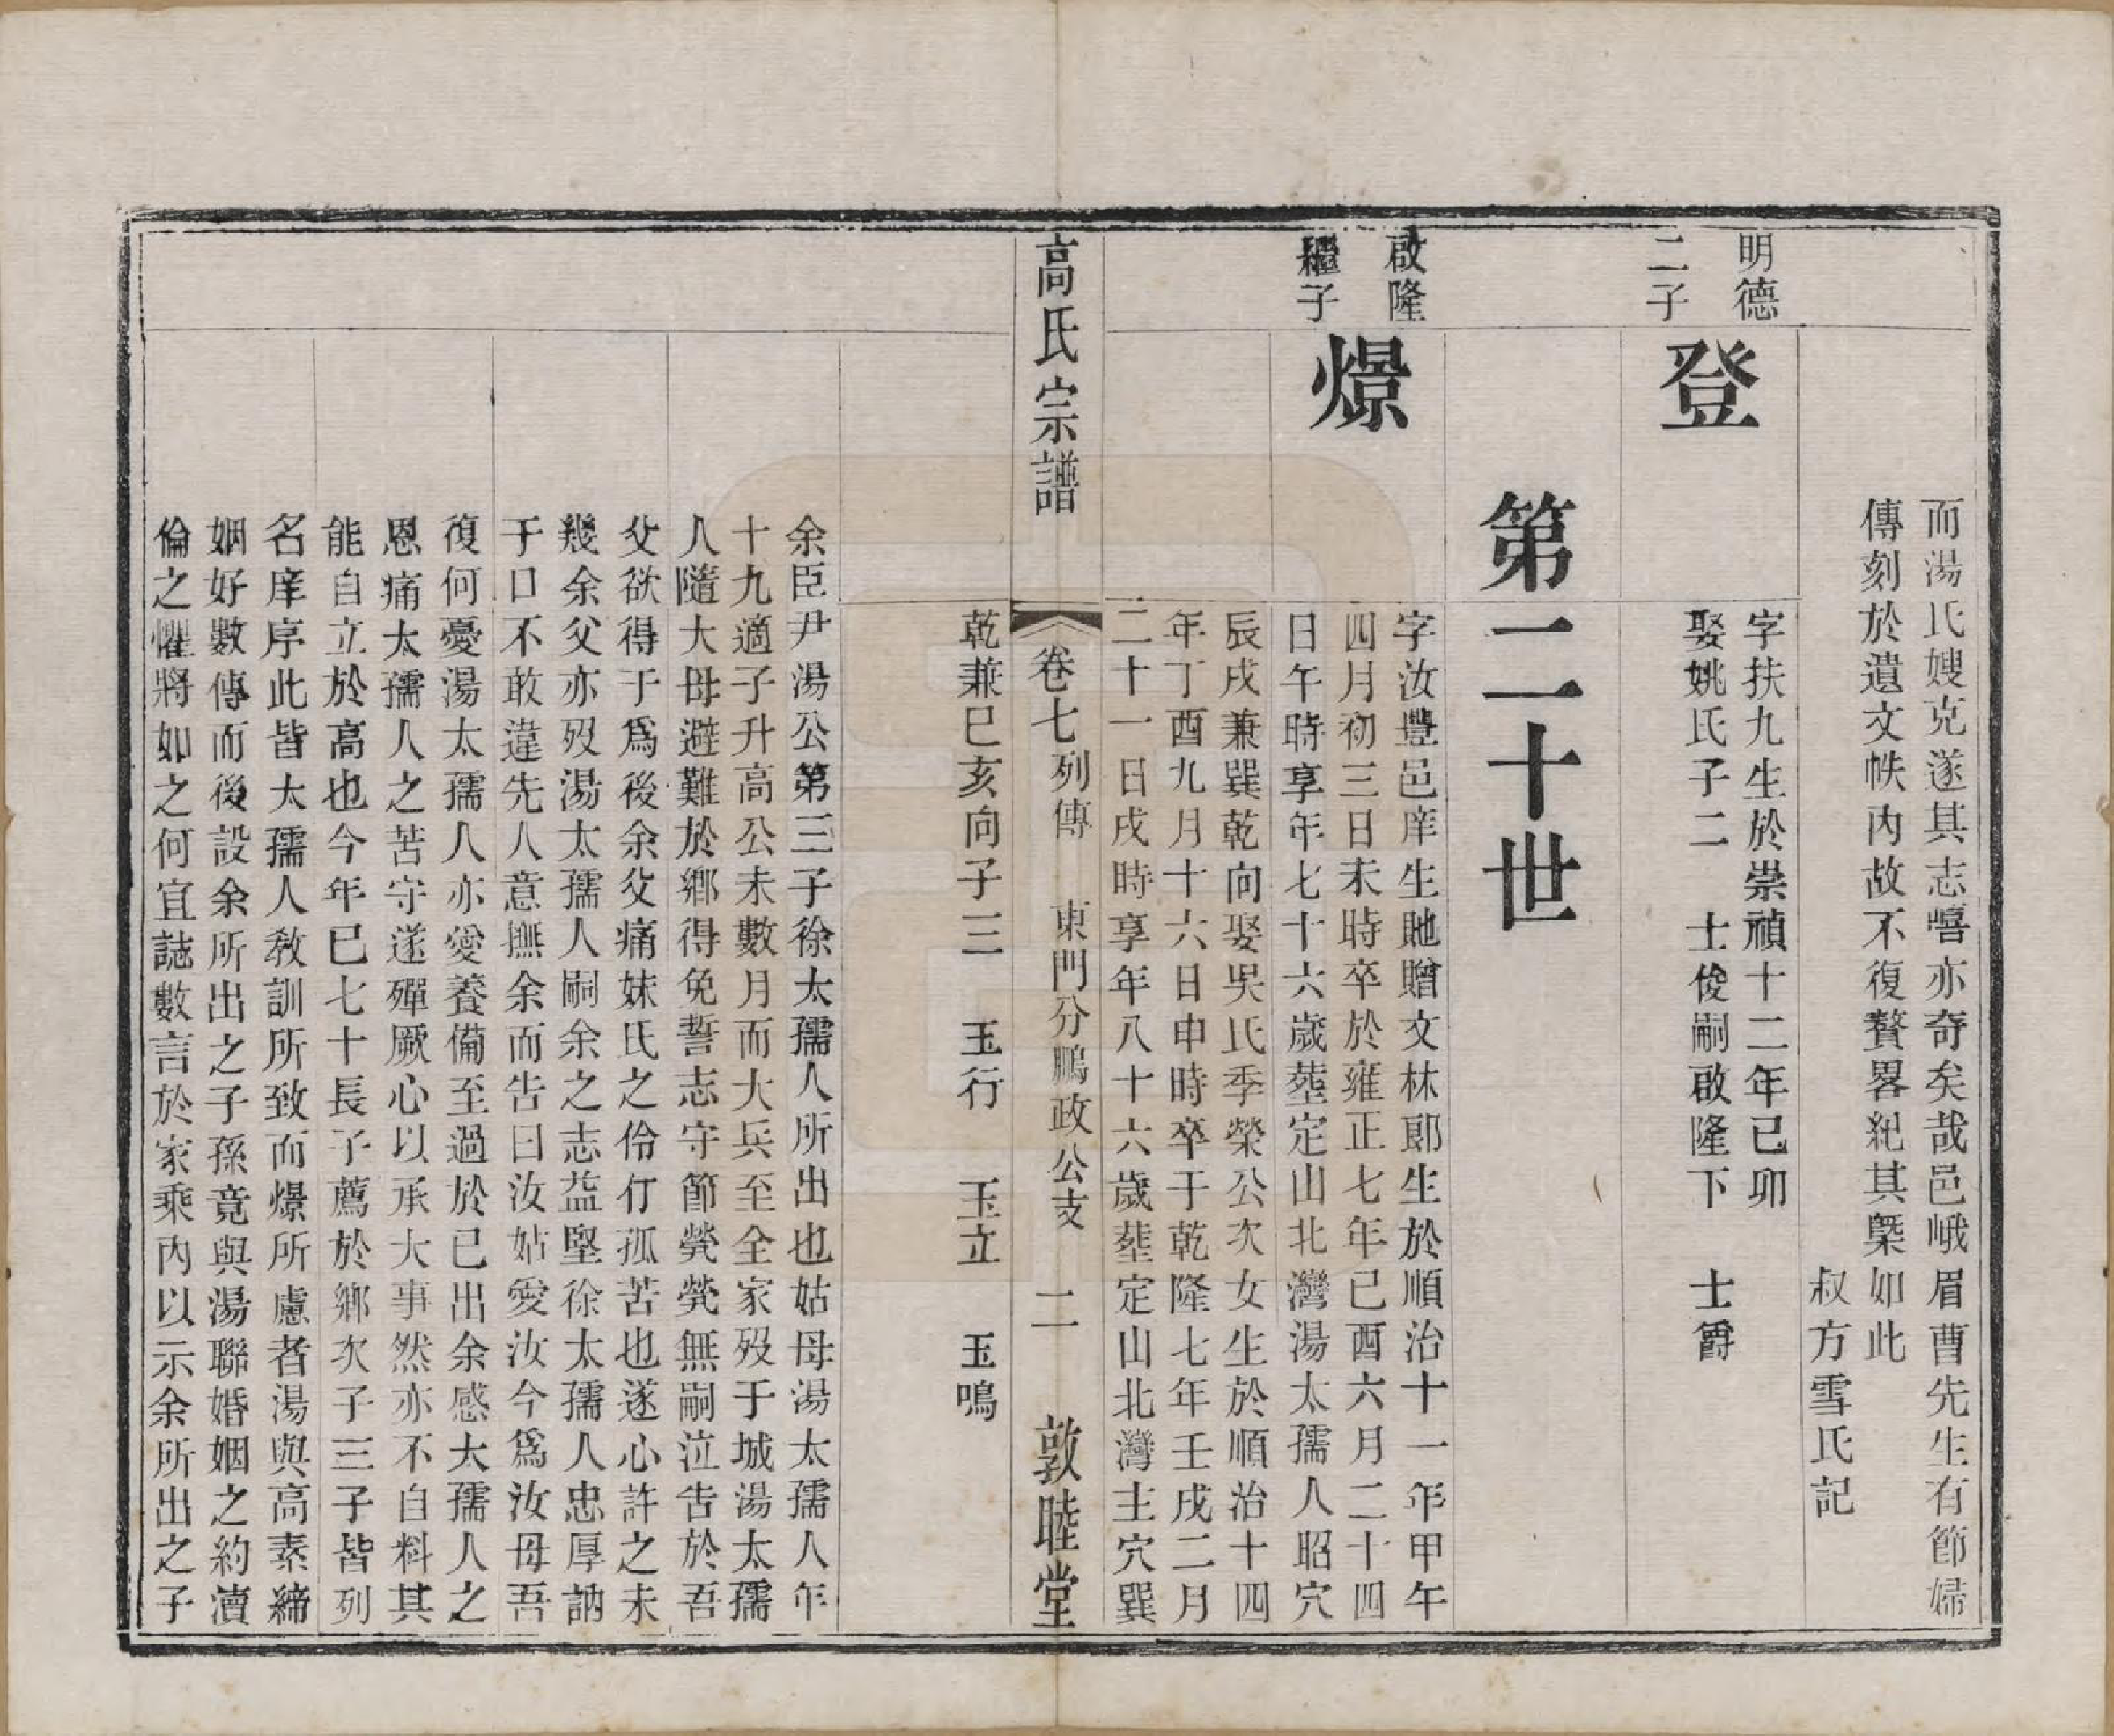 而湯氏嫂克遂其志嘻亦奇矣哉邑峨眉曹先生有節婦
傳刻於遺文帙內故不復贅畧紀其槩如此
叔方雪氏記
明德
二子
登
字扶九生於崇禎十二年已卯
娶姚氏子二　士俊嗣啟隆下　士爵
第二十世
啟隆
繼子
燝
字汝豐邑庠生貤贈文林郎生於順治十一年甲午
四月初三日未時卒於雍正七年已酉六月二十四
日午時享年七十六歲塟定山北灣湯太孺人昭穴
辰戌兼巽乾向娶吳氏季榮公次女生於順治十四
年丁酉九月十六日申時卒于乾隆七年壬戌二月
二十一日戌時享年八十六歲塟定山北灣主穴巽
高氏宗譜
卷七列傳　東門分鵬政公支　二　敦睦堂
乾兼巳亥向子三　玉行　玉立　玉鳴
余臣尹湯公第三子徐太孺人所出也姑母湯太孺人年
十九適子升高公未數月而大兵至全家歿于城湯太孺
人隨大母避難於鄉得免誓志守節煢煢無嗣泣告於吾
父欲得于爲後余父痛妹氏之伶仃孤苦也遂心許之未
幾余父亦歿湯太孺人嗣余之志益堅徐太孺人忠厚訥
于口不敢違先人意撫余而告曰汝姑愛汝今爲汝母吾
復何憂湯太孺人亦愛養備至過於已出余感大孺人之
恩痛太孺人之苦守遂殫厥心以承大事然亦不自料其
能自立於高也今年已七十長子薦於鄉次子三子皆列
名庠序此皆大孺人敎訓所致而燝所慮者湯與高素締
姻好數傳而後設余所出之子孫竟與湯聯婚姻之約瀆
倫之懼將如之何宜誌數言於家乘內以示余所出之子